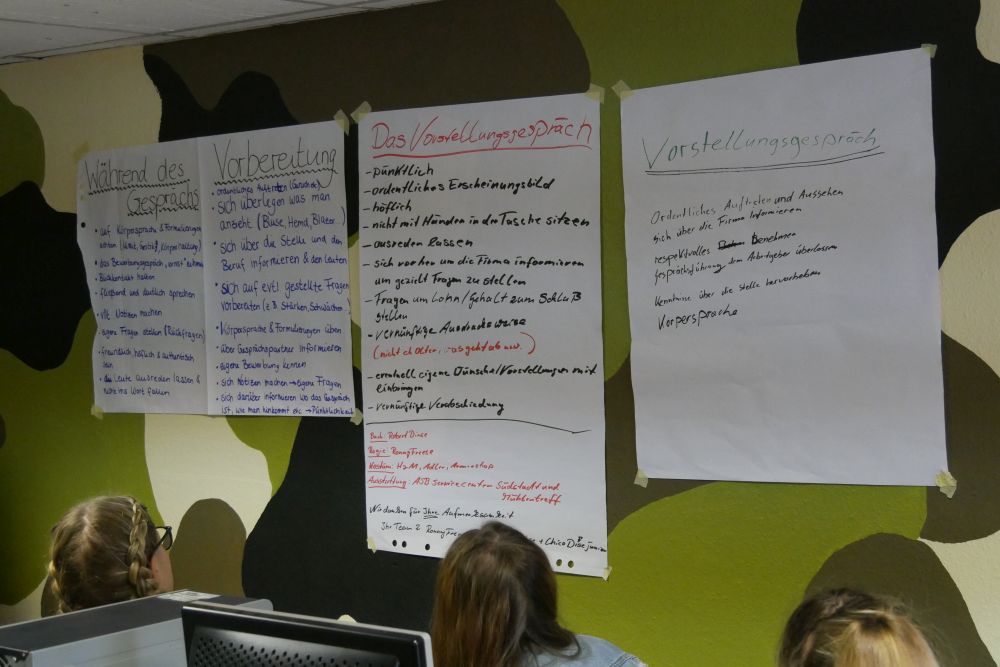 Während des
Gesprächs
• auf Körpersprache & Formulierungen
achten (Mimik, Gestik, Körperhaltung)
• das Bewerbungsgespräch „ernst“ nehmen
• Blickkontakt halten
• fließend und deutlich sprechen
• evtl. Notizen machen
• eigene Fragen stellen (Rückfragen)
• freundlich, höflich & authentisch
sein
• die Leute ausreden lassen &
nicht ins Wort fallen
Vorbereitung
• ordentliches Auftreten (Geruch etc.)
• sich überlegen was man
anzieht (Bluse, Hemd, Blazer)
• sich über die Stelle und den
Beruf informieren & den Leuten
• sich auf evtl gestellte Fragen
vorbereiten (z.B. Stärken, Schwächen)
• Körpersprache & Formulierungen üben
• über Gesprächspartner informieren
• eigene Bewerbung kennen
• sich Notizen machen → eigene Fragen
• sich darüber informieren wo das Gespräch
ist, wie man hinkommt etc → Pünktlichkeit
Das Vorstellungsgespräch
- pünktlich
- ordentliches Erscheinungsbild
- höflich
- nicht mit Händen in der Tasche sitzen
- ausreden lassen
- sich vorher um die Firma informieren
um gezielt Fragen zu stellen
- Fragen um Lohn/Gehalt zum Schluß
stellen
- vernünftige Ausdrucksweise
(nicht eh Alter, was geht ab usw.)
- eventuell eigene Wünsche/Vorstellungen mit
einbringen
- vernünftige Verabschiedung
Buch: Robert Dinse
Regie: Ronny Freese
Kostüm: H&M, Adler, Armyshop
Ausstattung: ASB Servicecenter Südstadt und
Stübbentreff
Wir danken für Ihre Aufmerksamkeit
Ihr Team 2 Ronny Free
+ Chico
Vorstellungsgespräch
Ordentliches Auftreten und Aussehen
Sich über die Firma Informieren
respektvolles Benehmen
Gesprächsführung dem Arbeitgeber überlassen
Kenntnisse über die Stelle hervorheben
Körpersprache